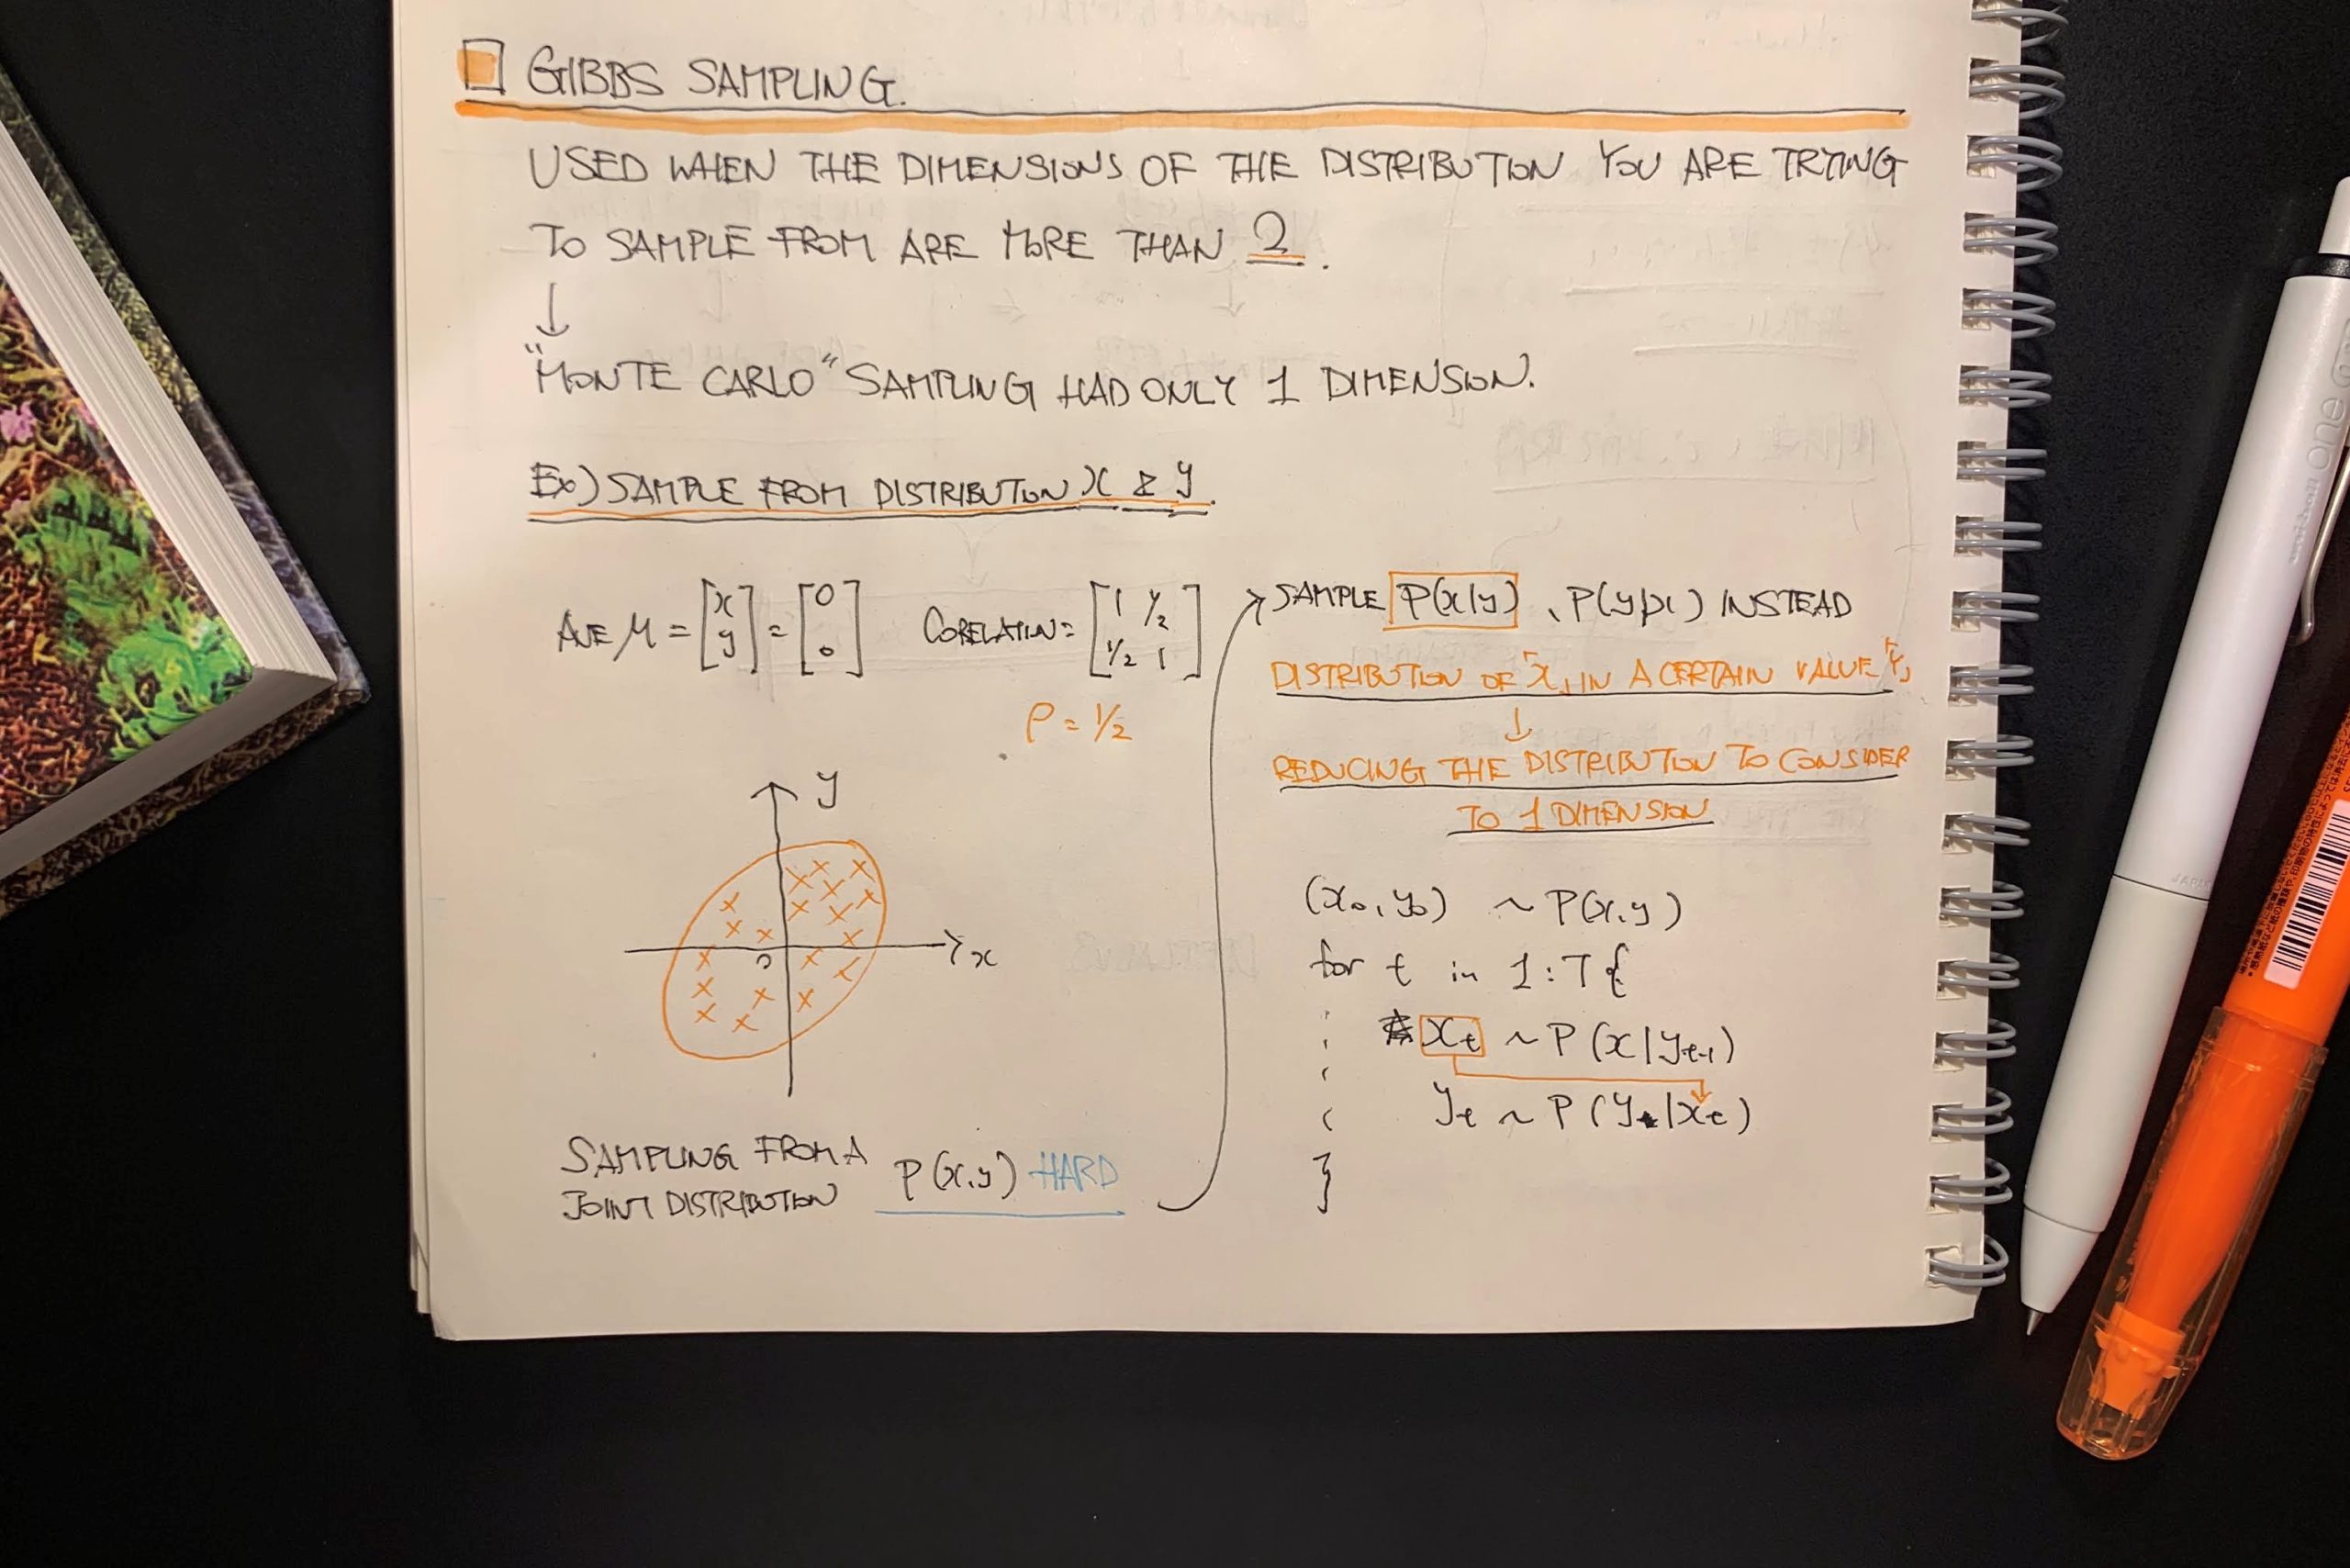 GIBBS SAMPLING.
USED WHEN THE DIMENSIONS OF THE DISTRIBUTION YOU ARE TRYING
TO SAMPLE FROM ARE MORE THAN 2.
↓
"MONTE CARLO" SAMPLING HAD ONLY 1 DIMENSION.
Ex) SAMPLE FROM DISTRIBUTION x & y.
AVE μ = [x y] = [0 0] CORELATION = [1 1/2 1/2 1]
ρ = 1/2
y
x
0
SAMPLING FROM A
JOINT DISTRIBUTION P(x,y) HARD
SAMPLE P(x|y)、P(y|x) INSTEAD
DISTRIBUTION OF「x」IN A CERTAIN VALUE「Y」
↓
REDUCING THE DISTRIBUTION TO CONSIDER
TO 1 DIMENSION
(x₀,y₀) ~ P(x,y)
for t in 1:T{
xₜ ~ P(x|yₜ₋₁)
yₜ ~ P(y|xₜ)
}
one
JAPAN